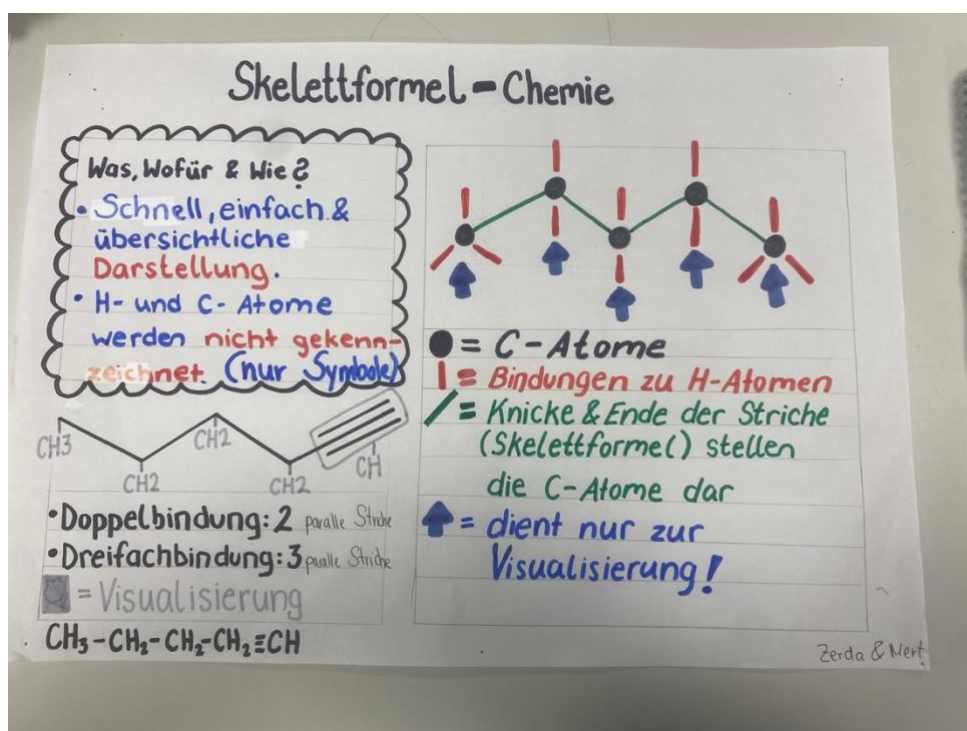 Skelettformel - Chemie
Was, Wofür & Wie?
• Schnell, einfach &
übersichtliche
Darstellung.
• H- und C-Atome
werden nicht gekenn-
zeichnet. (nur Symbole)
CH3
CH2
CH2
CH2
CH
• Doppelbindung: 2 paralle Striche
• Dreifachbindung: 3 paralle Striche
= Visualisierung
CH₃-CH₂-CH₂-CH₂≡CH
= C-Atome
= Bindungen zu H-Atomen
= Knicke & Ende der Striche
(Skelettformel) stellen
die C-Atome dar
= dient nur zur
Visualisierung!
Zerda & Mert